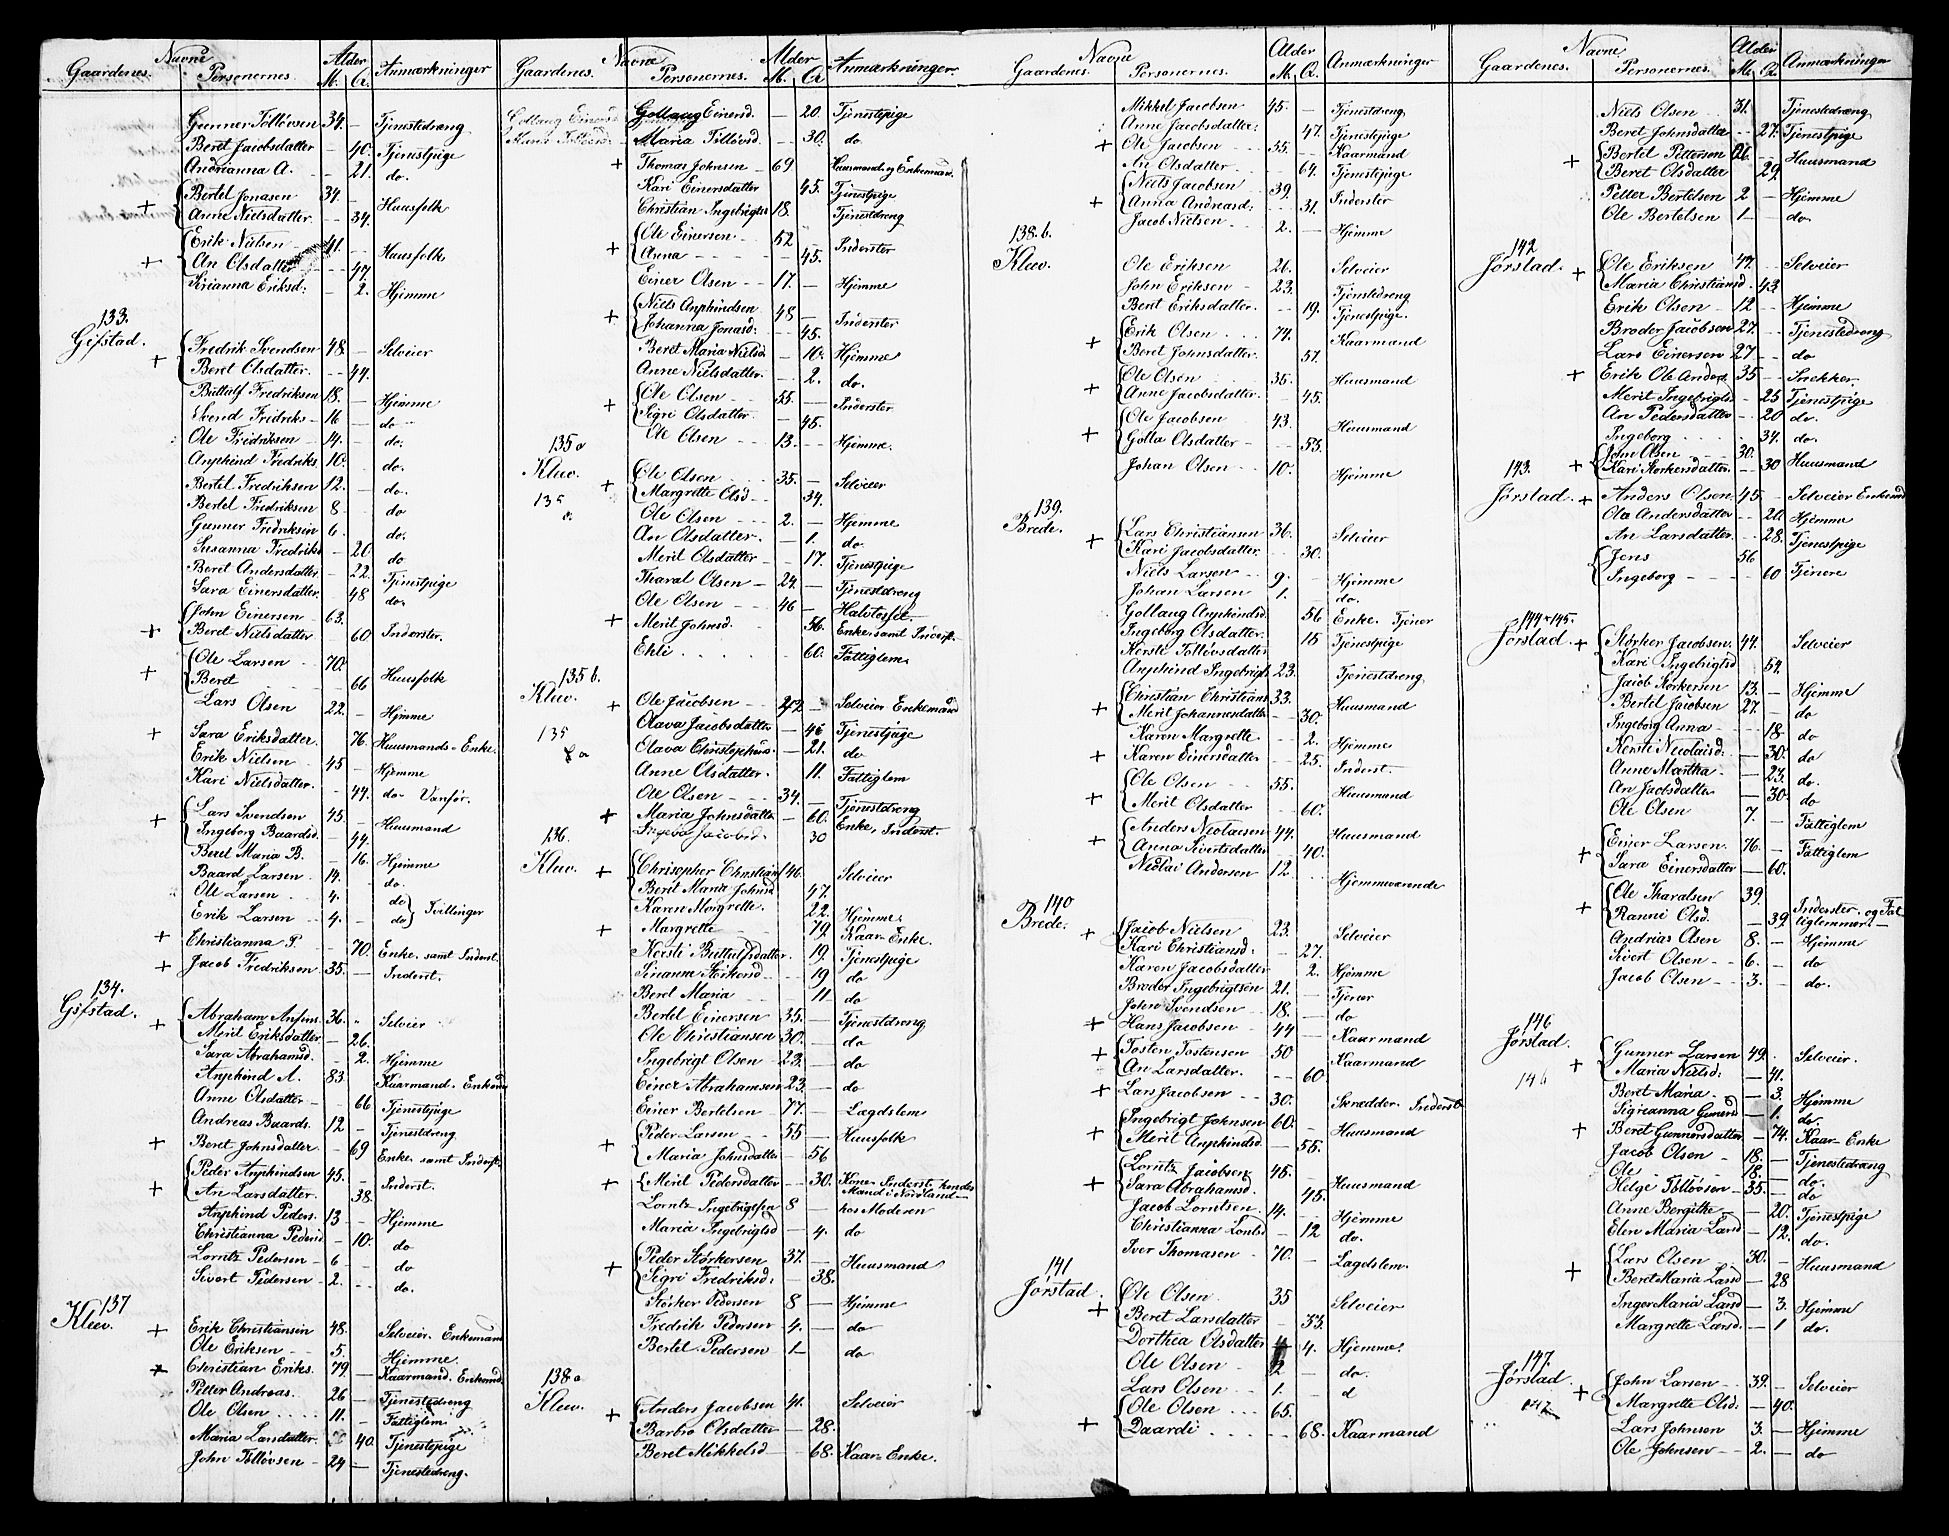 Navne Alder
Gaardenes. Personernes. M. Q. Anmærkninger
Gunner Tollövsen 34. — Tjenestedræng
Beret Jacobsdatter - 40. Tjenestpige
Andrianna A. - 21. do.
+ Bertel Jonasen 34. — Huusfolk
Anne Nielsdatter - 34.
+ Erik Nielsen 41. — Huusfolk
An Olsdatter - 47.
Krianna Eriksd: - 2. Hjemme
133.
Gifstad.
+ Fredrik Svendsen 48. — Selveier
Beret Olsdatter. - 44.
Buttolf Fredriksen 18. — Hjemme
Svend Fredriks- 16 — do
Ole Fredriksen - 14. — do.
Anphind Fredriks. 10. do.
Bertel Fredriksen 12. - do.
Bertel Fredriksen 8 - do
Gunner Fredriksen 6. do.
Susanna Fredriks - 20. do
Beret Andersdatter - 22. Tjenestpige
Sara Einersdatter. 48 do.
+ John Einersen - 63. Inderster.
Beret Nielsdatter - 60
+ Ole Larsen - 70. Huusfolk
Beret - 66
Lars Olsen 22. - Hjemme
+ Sara Eriksdatter. 76. Huusmands-Enke.
Erik Nielsen 45 - Hjemme
Kari Nielsdatter. - 44. do- Vanför.
+ Lars Svendsen 45. - Huusmand
Ingeborg Baardsd. - 44.
Beret Maria B. - 16. Hjemme
Baard Larsen. 14. do.
Ole Larsen 4. do Tvillinger
Erik Larsen - 4. - do
+ Christianna P. - 70. Enke. samt Inderst.
+ Jacob Fredriksen 35. — Inderst.
134.
Gifstad.
+ Abraham Anfins. 36. " Selveier
Merit Eriksdatter - 26.
Sara Abrahamsd. - 2. Hjemme
Anphind A. 83. Kaarmand. Enkem
Anne Olsdatter - 66 Tjenestpige
Andreas Baards. 12 - Tjenestdreng
+ Beret Johnsdatter. - 69 Enke. samt Inderst.
+ Peder Anphindsen 45. - Inderst.
An Larsdatter. 38.
Anphind Peders. 13 - Hjemme
Christianna Pedersd - 10. do
Lorntz Pedersen - 6 - do
Sivert Pedersen - 2. — do.
137
Kleev.
+ Erik Christiansen 48. - Selveier. Enkemand
Ole Eriksen - - 5. Hjemme.
+ Christian Eriks. 79. — Kaarmand. Enkemd.
Petter Andreas. 26 — Tjenestedreng
Ole Olsen . . . . 11. — Fattiglem.
Maria Larsdatter. 40. Tjenestepige
John Tollövsen - 24 — Tjenestedreng.
Navne Alder
Gaardenes. Personernes. M. Q. Anmærkninger.
Gollaug Einersd. — 20. Tjenestpige
Maria Tollövsd. — 30. do
+ Thomas Johnsen - 69 Huusmand. og Enkemand.
Kari Einersdatter 45. Tjenestpige
Christian Ingebrigts 18. Tjenestdreng
+ Ole Einersen - - 52 - Inderster
Anna - - - - - 45.
Einer Olsen - - 17. — Hjemme
+ Niels Anphindsen 48 — Inderster
Johanna Jonasd: - 45.
Beret Maria Nielsd — 10. Hjemme
Anne Nielsdatter. - 2. do.
+ Ole Olsen - - 55. — Inderster
Sigri Olsdatter. - 45.
Ole Olsen - - 13. — Hjemme.
135 a
Kluv.
135
a.
+ Ole Olsen - - - 35. — Selveier
Margrette Olsd - - 34.
Ole Olsen - - - 2. — Hjemme
An Olsdatter. - 1. do.
Merit Olsdatter - - 17. Tjenestpige
Tharal Olsen — 24. — Tjenestdreng
Ole Olsen - - - 46 —
+ Merit Johnsd. - 56. Enke, samt Inderst.
Ehli . . . . . 60. Fattiglem.
135 b.
Kluv.
135
+ Ole Jacobsen - - 42 - Selveier Enkemand
Olava Jacobsdatter - 45 Tjenestpige
Olava Christophers. - 21. do
Anne Olsdatter. - 11. Fattiglem
Ole Olsen - - - 34. — Tjenestdreng
+ Maria Johnsdatter — 60. Enke, Inderst.
Ingebor Jacobsd. 30
136.
Kluv.
+ Christopher Christian 46. Selveier
Berit Maria Johnsd 47.
Karen Margrette. 22. Hjemme.
+ Margrette - - - 79. Kaar-Enke.
Kersti Buttulfsdatter. 19. Tjenestpige
Sinanne Störkersd - - 19 do
Beret Maria - - - 11 do
Bertel Einersen 35. — Tjenestdreng
Ole Christiansen 30. — do
Ingebrigt Olsen - 23. — do
Einer Abrahamsen 23. — do
Einer Bertelsen - 77. — Lagdslem
+ Peder Larsen - - 55 — Huusfolk
Maria Johnsdatter - 56
+ Merit Pedersdatter — 30. Kone Inderst, hendes
Mand i Nordland —
Lorntz Ingebrigtsen 8 — hos Moderen
Maria Ingebrigtsd — 4. do
+ Peder Störkersen 37. — Huusmand
Sigri Fredriksd: - 38.
Störker Pedersen 8 — Hjemme
Fredrik Pedersen 4. — do
Bertel Pedersen 1 — do
138 a
Kleev.
+ Anders Jacobsen 41. Selveier
Barbro Olsdatter — 28.
Beret Mikkelsd — 68. Kaar-Enke.
Navne Alder
Gaardenes. Personernes. M. Q. Anmærkninger
Mikkel Jacobsen 45. — Tjenestdreng
Anne Jacobsdatter: 47. Tjenestepige
+ Ole Jacobsen - - 55. — Kaarmand
An Olsdatter - - 64. Tjenestpige
+ Niels Jacobsen - 39. Inderster
Anna Andreasd: - 31.
Jacob Nielsen - - 2. — Hjemme
138. b.
Kluv.
Ole Eriksen - - 26. Selveier
John Eriksen - - 23. Tjenstedreng
Beret Eriksdatter. - 19. Tjenestpige.
+ Erik Olsen . . . 74. Kaarmand
Beret Johnsdatter. - 57.
+ Ole Olsen - - 35. Huusmand
Anne Jacobsdatter. 45.
+ Ole Jacobsen - - 43. Huusmand
Golla Olsdatter - 53.
Johan Olsen - - 10. Hjemme
139.
Brede.
+ Lars Christiansen 36. Selveier
Kari Jacobsdatter. 30.
Niels Larsen - - 9. - Hjemme
Johan Larsen - 1. - do.
Gollaug Anphindsd. 56 Enke. Tjener
Ingeborg Olsdatter. 15 Tjenestpige
Kersti Tollövsdatter
Anphind Ingebrigts 23. Tjenestdreng
+ Christian Christians 33. Huusmand
Merit Johannesdatter - 30.
Karen Margrette - 2. Hjemme
+ Karen Einersdatter - 25. Inderst.
+ Ole Olsen - - 55. Huusmand
Merit Olsdatter - 60.
+ Anders Nicolaisen 44. Huusmand
Anna Sivertsdatter - 40.
Nicolai Andersen 12. Hjemmeværende
140
Brede.
+ Jacob Nielsen - 23. Selveier
Kari Christiansd: - 27.
Karen Jacobsdatter - 2. Hjemme
Broder Ingebrigtsen 21. — Tjener
John Svendsen - 18. — do
+ Hans Jacobsen - 44 — Kaarmand
+ Tosten Tostensen 50 Kaarmand
An Larsdatter. - - 60
+ Lars Jacobsen - - 30. Skrædder. Inderst
+ Ingebrigt Johnsen 60. Huusmand
Merit Anphindsd - 55.
+ Lorntz Jacobsen 45. Huusmand
Sara Abrahamsd. 45.
Jacob Lorntsen - 14. — Hjemme
Christianna Lorntsd - 12 do.
Iver Thomasen - 70. — Lagdslem.
141
Jørstad.
+ Ole Olsen 35 Selveier
Beret Larsdatter - 33.
Dorthea Olsdatter 4. Hjemme
Ole Olsen - 2 - do.
Lars Olsen . . . 1. - d
+ Ole Olsen . . . 65.
Daardi . . . . . - 68. Kaarmand
Navne Alder
Gaardenes. Personernes. M. Q. Anmærkninger
Niels Olsen - 31. Tjenestedræng
Beret Johnsdatter - 27. Tjenestpige
+ Bertel Pettersen 26. - Huusmand
Beret Olsdatter - 29.
Petter Bertelsen 2 — Hjemme
Ole Bertelsen 1 — do.
142
Jørstad.
+ Ole Eriksen 47. - Selveier
Maria Christiansd. - 43.
Erik Olsen - - 12 - Hjemme
Broder Jacobsen 27. — Tjenestedreng
Lars Einersen 27 - - do
+ Erik Ole Anders. 35 — Snekker
Merit Ingebrigts. - 25 Tjenestpige
An Pedersdatter - 20 do.
Ingeborg . . . . 34. do.
+ John Olsen - - 30. Huusmand
Kari Störkersdatter. - 30
143.
Jørstad.
+ Anders Olsen. 45. - Selveier Enkemd
Ola Andersdatter - 20. Hjemme
An Larsdatter - 28. Tjenestpige
Jens 56 Tjenere
Ingeborg - - - - 60
144 & 145.
Jørstad
+ Störker Jacobsen. 44. Selveier
Kari Ingebrigtsd - 54.
Jacob Störkersen 13. — Hjemme
Bertel Jacobsen 27. — do
Ingeborg Anna - 18. do
Kersti Nicolaisd: - 30. do
Anne Martha - 23. do.
An Jacobsdatter - 30. do
Ole Olsen 7. — Fattiglem
+ Einer Larsen. 76. - Fattiglem
Sara Einersdatter - 60.
+ Ole Tharalsen 39. Inderster. og Fat
Ranni Olsd. - 39. tiglemmer. —
Andrias Olsen 8. — Hjemme
Sivert Olsen - - 6. — do
Jacob Olsen - - 3. — do.
146
Jørstad.
146
+ Gunner Larsen 49. Selveier.
Maria Nielsd: — 41.
Beret Maria. — 3. Hjemme
Sigrianna Gunersd — 1. do.
+ Beret Gunnersdatter — 74. Kaar-Enke
Jacob Olsen - 18. — Tjenestedræng
Ole - 18. — do.
Helge Tollövsen - 35. — do
Anne Bergithe - — 20. Tjenestpige
Elen Maria Larsd — 12. do.
+ Lars Olsen - 30. — Huusmand
Beret Maria Larsd — 28
Inger Maria Larsd — 3. Hjemme
Margrette Larsd. — 1 do.
147.
Jørstad.
147
+ John Larsen - 39. — Selveier
Margrette Olsd: — 40.
Lars Johnsen 3. — Hjemme
Ole Johnsen - - 2. — do